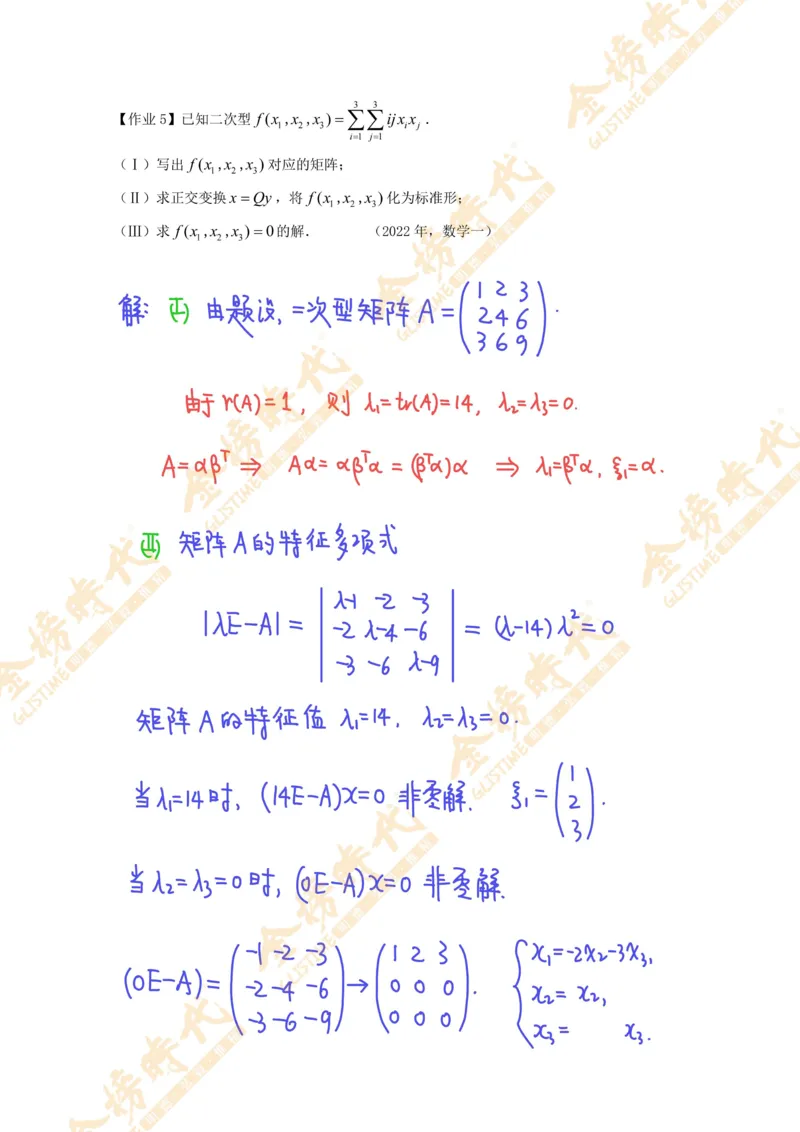 【作业5】已知二次型 f(x₁,x₂,x₃)=∑_{i=1}^{3}∑_{j=1}^{3} ijxᵢxⱼ.
(Ⅰ)写出 f(x₁,x₂,x₃)对应的矩阵;
(Ⅱ)求正交变换x=Qy,将 f(x₁,x₂,x₃)化为标准形;
(Ⅲ)求 f(x₁,x₂,x₃)=0的解. (2022年,数学一)
解: (I) 由题设,二次型矩阵A=(1 2 3; 2 4 6; 3 6 9).
由于r(A)=1, 则 λ₁=tr(A)=14, λ₂=λ₃=0.
A=αβᵀ ⇒ Aα=αβᵀα=(βᵀα)α ⇒ λ₁=βᵀα, ξ₁=α.
(II) 矩阵A的特征多项式
|λE-A|=|λ-1 -2 -3; -2 λ-4 -6; -3 -6 λ-9|=(λ-14)λ²=0
矩阵A的特征值 λ₁=14, λ₂=λ₃=0.
当λ₁=14时, (14E-A)x=0 非零解. ξ₁=(1; 2; 3).
当λ₂=λ₃=0时, (0E-A)x=0 非零解.
(0E-A)=(-1 -2 -3; -2 -4 -6; -3 -6 -9)→(1 2 3; 0 0 0; 0 0 0). {x₁=-2x₂-3x₃, x₂=x₂, x₃= x₃.
金榜時代
GLISTIME